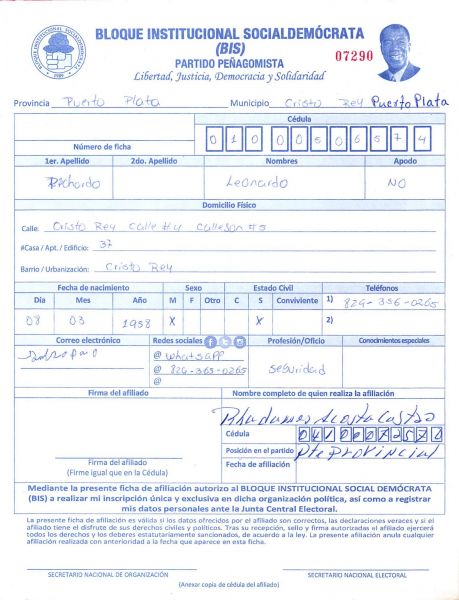 BLOQUE INSTITUCIONAL SOCIALDEMÓCRATA
(BIS)
PARTIDO PEÑAGOMISTA
07290
Libertad, Justicia, Democracia y Solidaridad
Provincia Puerto Plata Municipio Cristo Rey Puerto Plata
Cédula
Número de ficha 0 1 0 0 0 5 0 6 5 7 4
1er. Apellido 2do. Apellido Nombres Apodo
Leonardo NO
Domicilio Físico
Calle: Cristo Rey Calle #4 Callejon #5
#Casa / Apt. / Edificio: 37
Barrio / Urbanización: Cristo Rey
Fecha de nacimiento Sexo Estado Civil Teléfonos
Día Mes Año M F Otro C S Conviviente 1) 829-356-0265
08 03 1958 X X 2)
Correo electrónico Redes sociales Profesión/Oficio Conocimientos especiales
@ whatsapp
@ 829-365-0265 Seguridad
@
Firma del afiliado Nombre completo de quien realiza la afiliación
Rhadames Acosta Castro
Cédula
Posición en el partido Pte Provincial
Firma del afiliado
(Firme igual que en la Cédula)
Fecha de afiliación
Mediante la presente ficha de afiliación autorizo al BLOQUE INSTITUCIONAL SOCIAL DEMÓCRATA
(BIS) a realizar mi inscripción única y exclusiva en dicha organización política, así como a registrar
mis datos personales ante la Junta Central Electoral.
La presente ficha de afiliación es válida si los datos ofrecidos por el afiliado son correctos, las declaraciones veraces y si el
afiliado tiene el disfrute de sus derechos civiles y políticos. Tras su recepción, sello y firma autorizadas el afiliado ejercerá
todos los derechos y los deberes estatutariamente sancionados, de acuerdo a la ley. La presente afiliación anula cualquier
afiliación realizada con anterioridad a la fecha que aparece en esta ficha.
SECRETARIO NACIONAL DE ORGANIZACIÓN SECRETARIO NACIONAL ELECTORAL
(Anexar copia de cédula del afiliado)